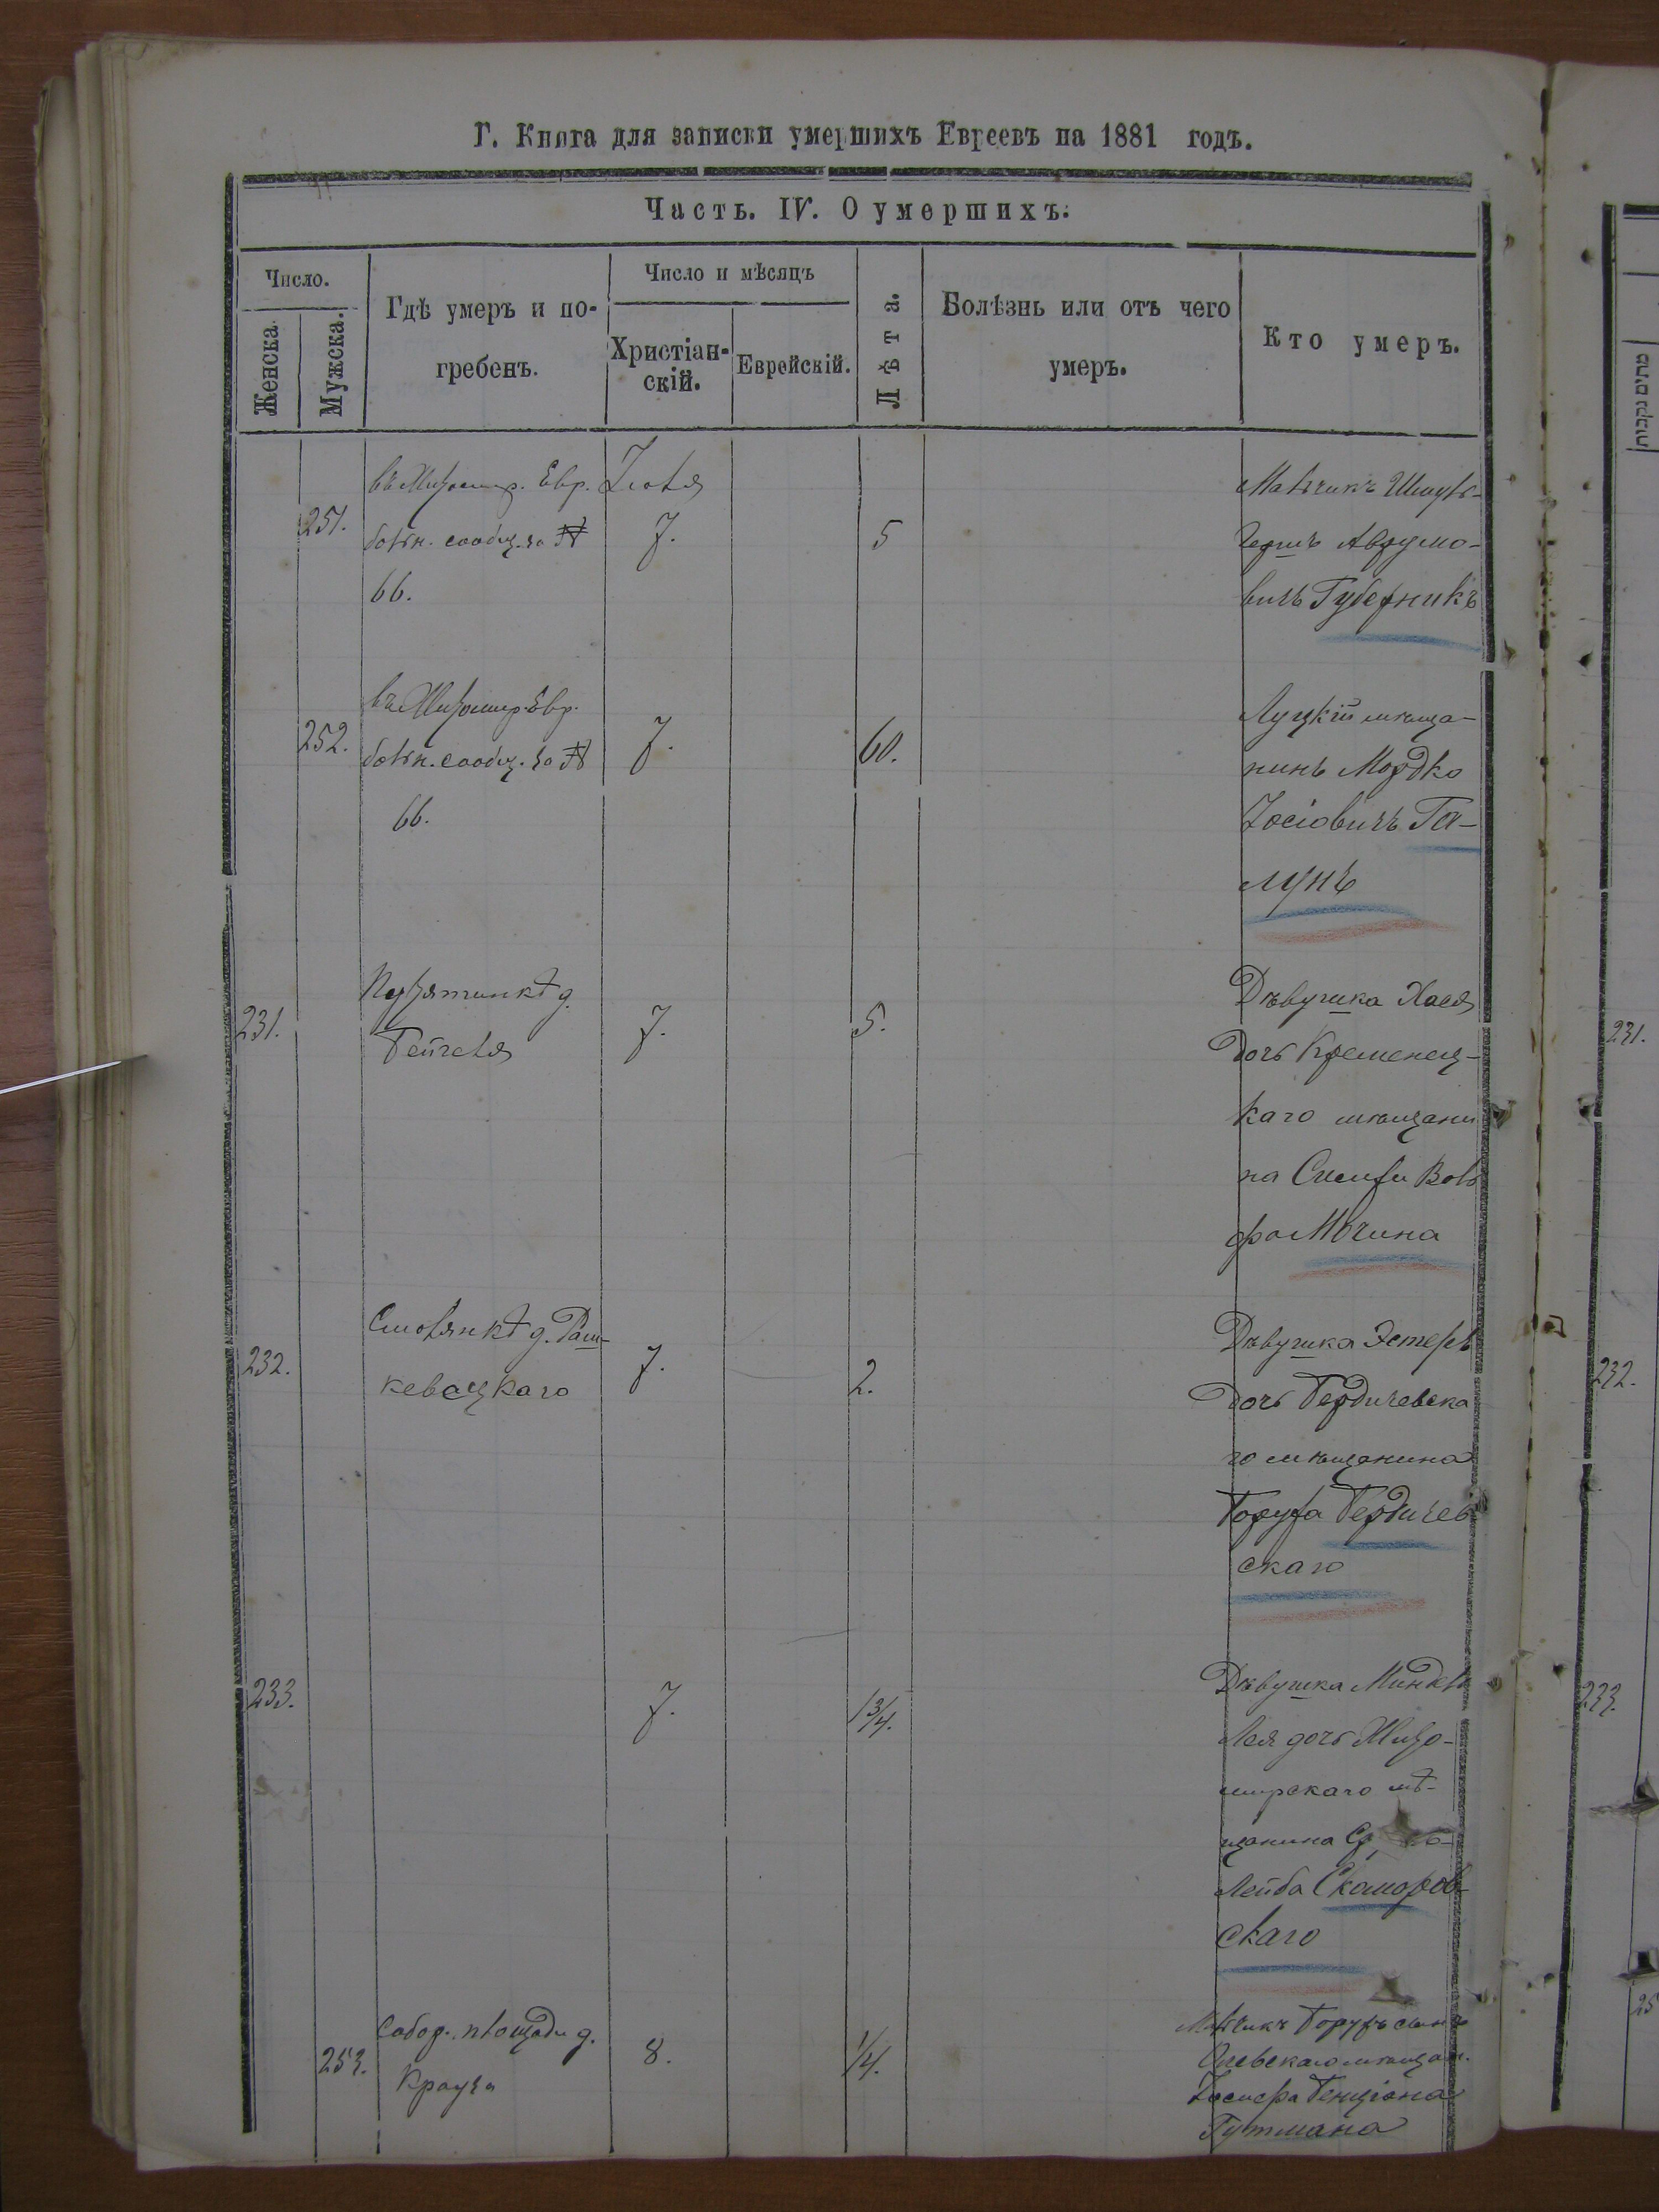 Г. Книга для записки умершихъ Евреевъ на 1881 годъ.
Часть. IV. О умершихъ.
Число.
Женска.
Мужска.
Гдѣ умеръ и по-
гребенъ.
Число и мѣсяцъ
Христіан-
скій.
Еврейскій.
Лѣта.
Болѣзнь или отъ чего
умеръ.
Кто умеръ.
251.
въ Житомир. Евр.
больн. сообщ. за №
66.
Іюля
7.
5
Мальчикъ Шмуль
Гершъ Аврумо-
вичъ Губерникъ
252.
въ Житомир. Евр.
больн. сообщ. за №
66.
7.
60.
Луцкій мѣща-
нинъ Мордко
Іосіовичъ Га-
лунъ
231.
д.
Бейгеля
7.
5.
Дѣвушка Хася
дочь Кременец-
каго мѣщани
на Воль
фа Мьчина
232.
Смолянкѣ д. Раш-
кевецкаго
7.
2.
Дѣвушка Эстеръ
дочь Бердичевска
го мѣщанина
Боруха Бердичев
скаго
233.
7.
1 3/4.
Дѣвушка Миндль
Лея дочь Жито-
мирскаго мѣ-
щанина
Лейба Скаморов-
скаго
253.
Собор. площади д.
Крауза
8.
1/4.
Мальчикъ Борухъ сынъ
мѣщан.
Іосифа Бенціона
Гутмана
231.
232.
233.
25